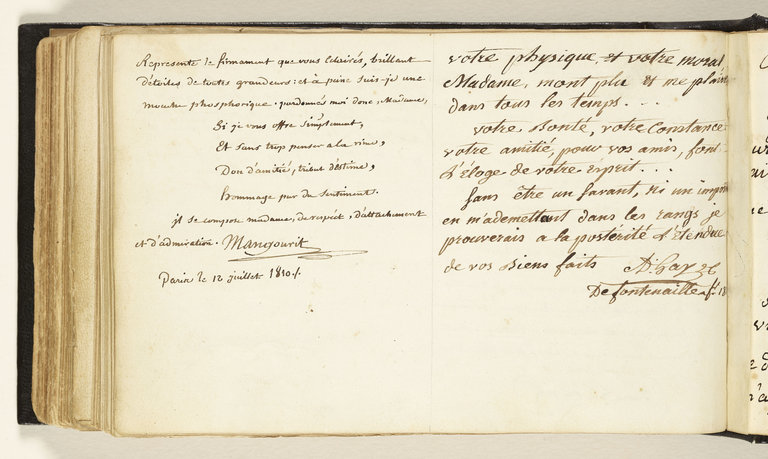 Represente le firmament que vous Eclairés, brillant
d'étoiles de toutes grandeurs: et à peine suis-je une
mouche phosphorique. pardonnés moi donc, Madame,
Si je vous offre simplement,
Et sans trop penser a la rime,
Don d'amitié, tribut d'estime,
hommage pur du sentiment.
il se compose madame, de respect, d'attachement
et d'admiration. Mangourit
Paris le 12 juillet 1810.
votre physique, et votre moral
Madame, m'ont plu et me plaisent
dans tous les temps...
votre Bonté, votre Constance
votre amitié, pour vos amis, font
L'éloge de votre Esprit...
sans être un savant, ni un
en m'ademettant dans les rangs je
prouverais a la postérité L'étendue
de vos Biens faits
De fontenaille